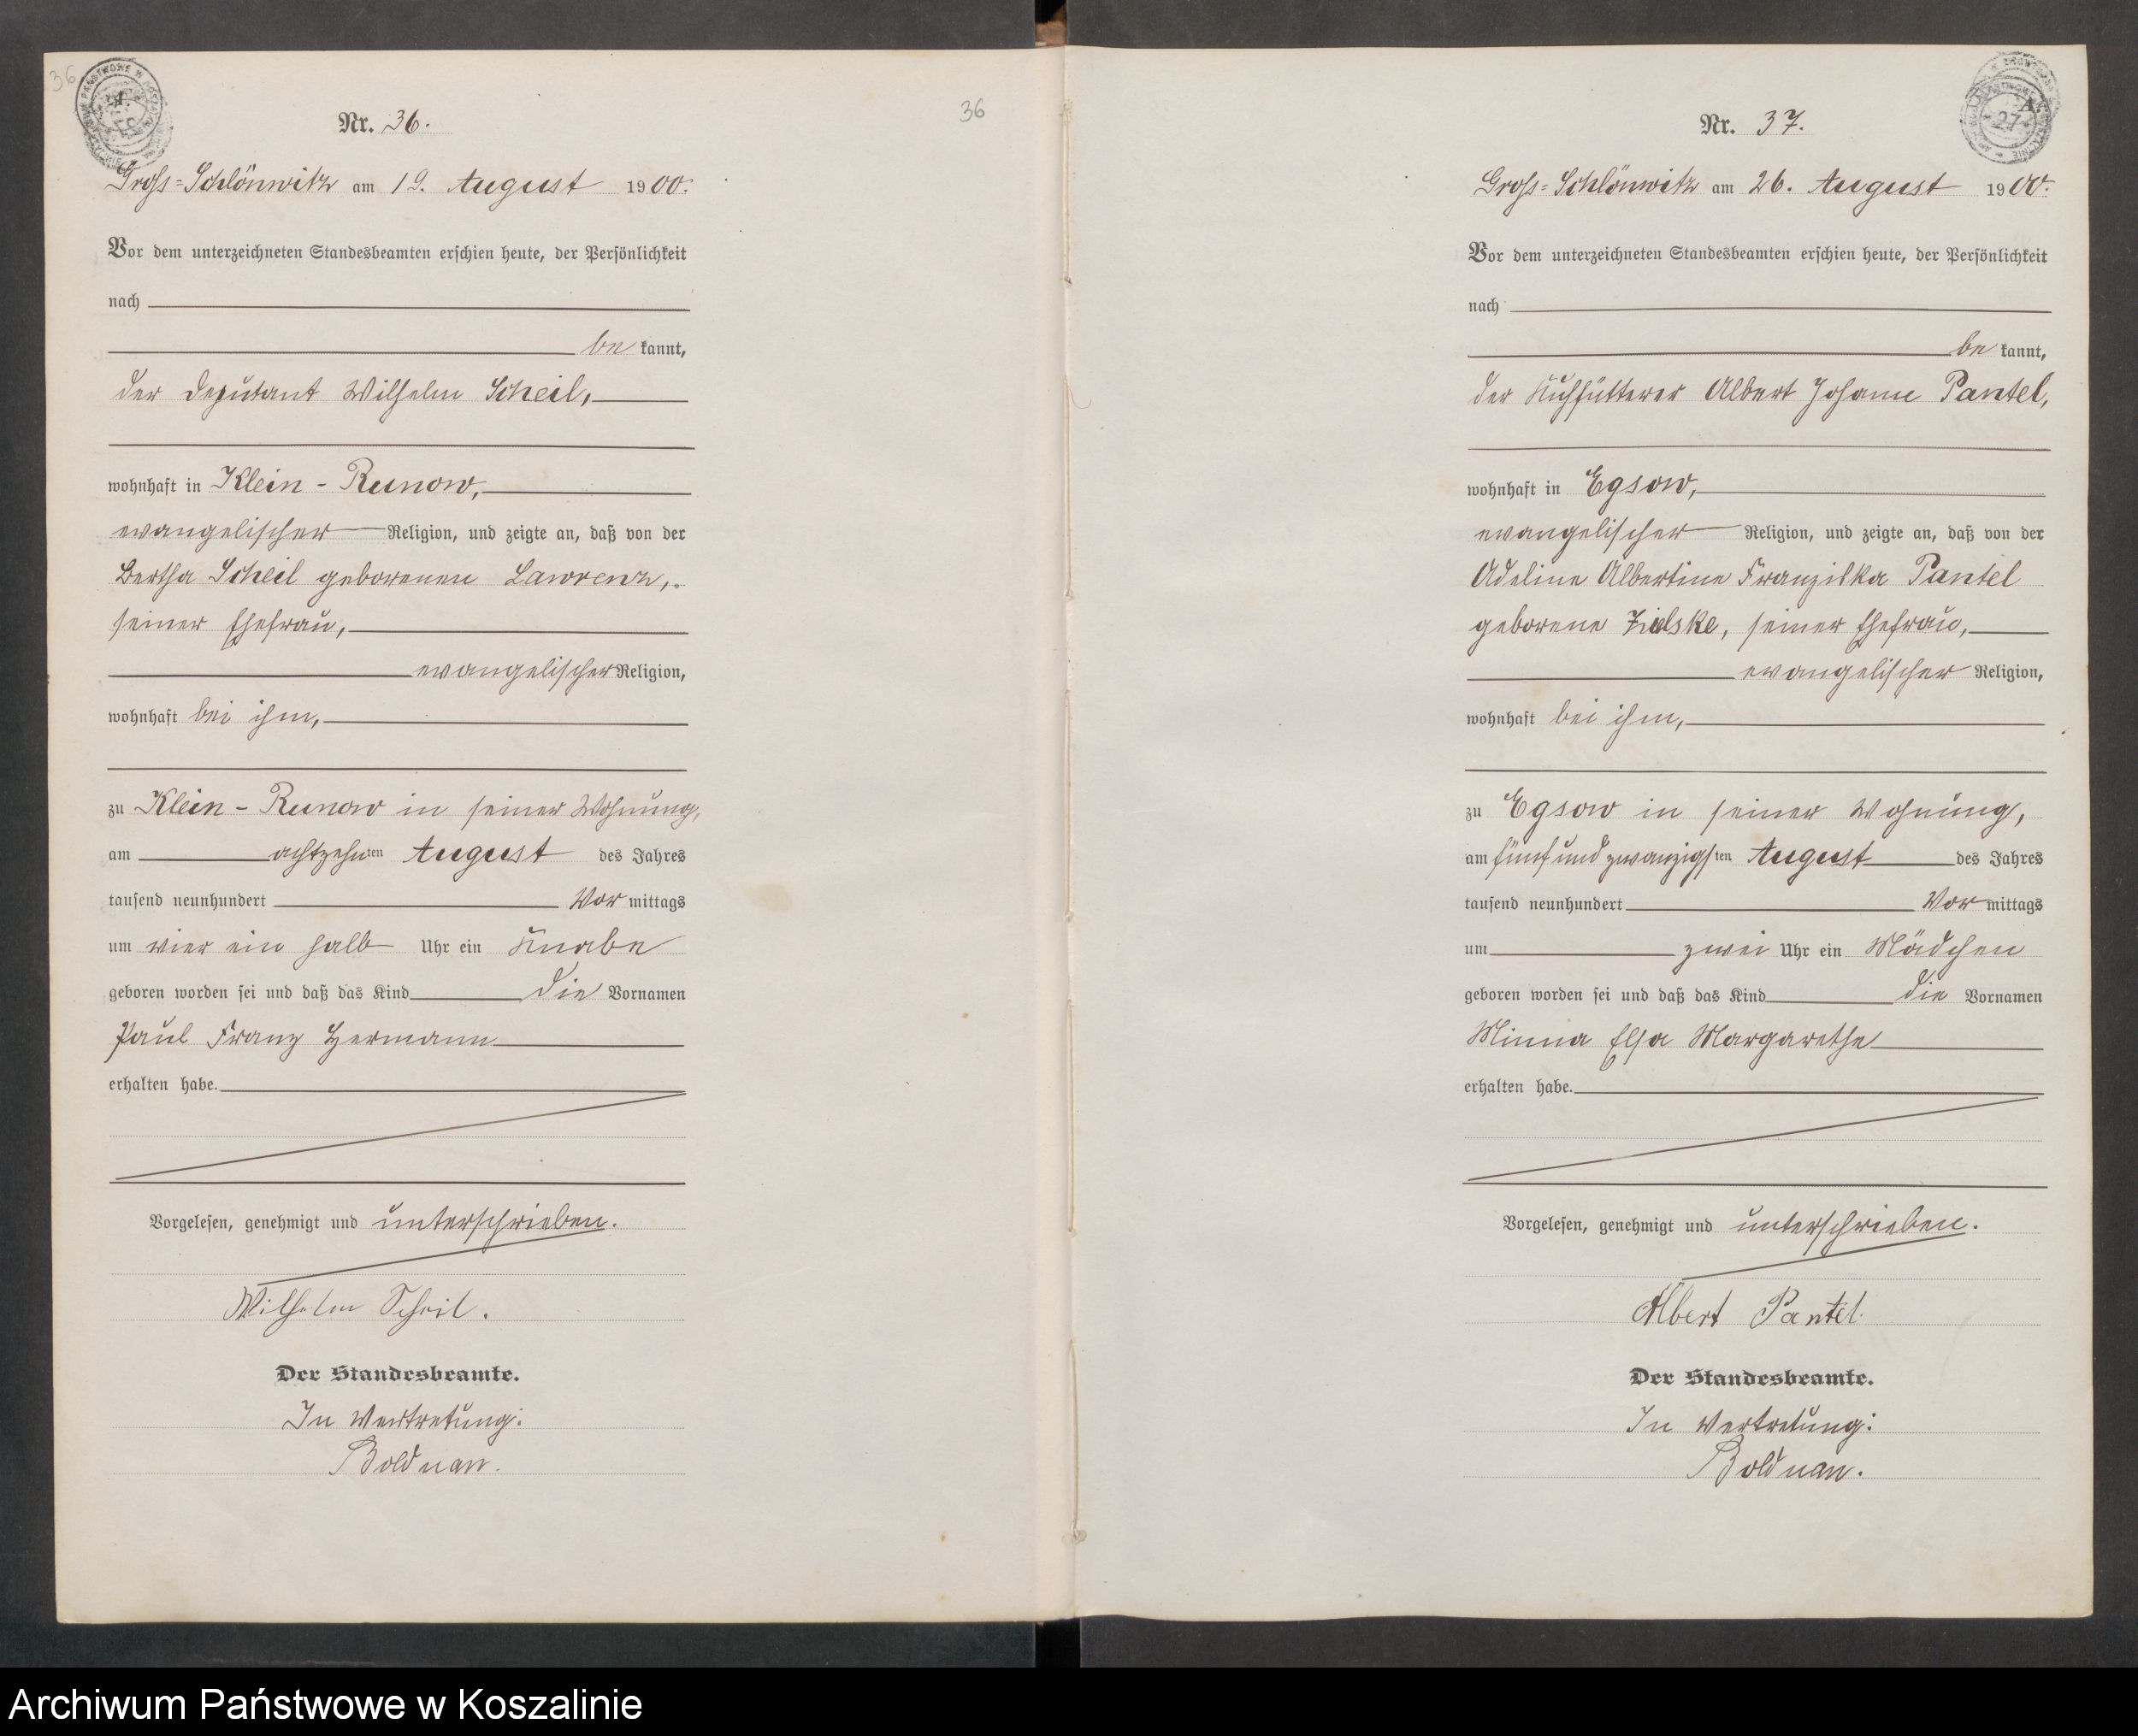 36
Nr. 36.
Gross-Schlönwitz am 19. August 1900.
Vor dem unterzeichneten Standesbeamten erschien heute, der Persönlichkeit
nach
be kannt,
der Deputant Wilhelm Scheil,
wohnhaft in Klein-Runow,
evangelischer Religion, und zeigte an, daß von der
Bertha Scheil geborenen Lawrenz,
seiner Ehefrau,
evangelischer Religion,
wohnhaft bei ihm,
zu Klein-Runow in seiner Wohnung,
am achtzehnten August des Jahres
tausend neunhundert Vor mittags
um vier ein halb Uhr ein Knabe
geboren worden sei und daß das Kind die Vornamen
Paul Franz Hermann
erhalten habe.
Vorgelesen, genehmigt und unterschrieben.
Wilhelm Scheil.
Der Standesbeamte.
In Vertretung:
Bolduan.
36
Nr. 37.
A.
27
Gross-Schlönwitz am 26. August 1900.
Vor dem unterzeichneten Standesbeamten erschien heute, der Persönlichkeit
nach
be kannt,
der Kuhfütterer Albert Johann Pantel,
wohnhaft in Egsow,
evangelischer Religion, und zeigte an, daß von der
Adeline Albertine Franziska Pantel
geborene Zielske, seiner Ehefrau,
evangelischer Religion,
wohnhaft bei ihm,
zu Egsow in seiner Wohnung,
am fünfundzwanzigsten August des Jahres
tausend neunhundert Vor mittags
um zwei Uhr ein Mädchen
geboren worden sei und daß das Kind die Vornamen
Minna Elsa Margarethe
erhalten habe.
Vorgelesen, genehmigt und unterschrieben.
Albert Pantel.
Der Standesbeamte.
In Vertretung:
Bolduan.
Archiwum Państwowe w Koszalinie